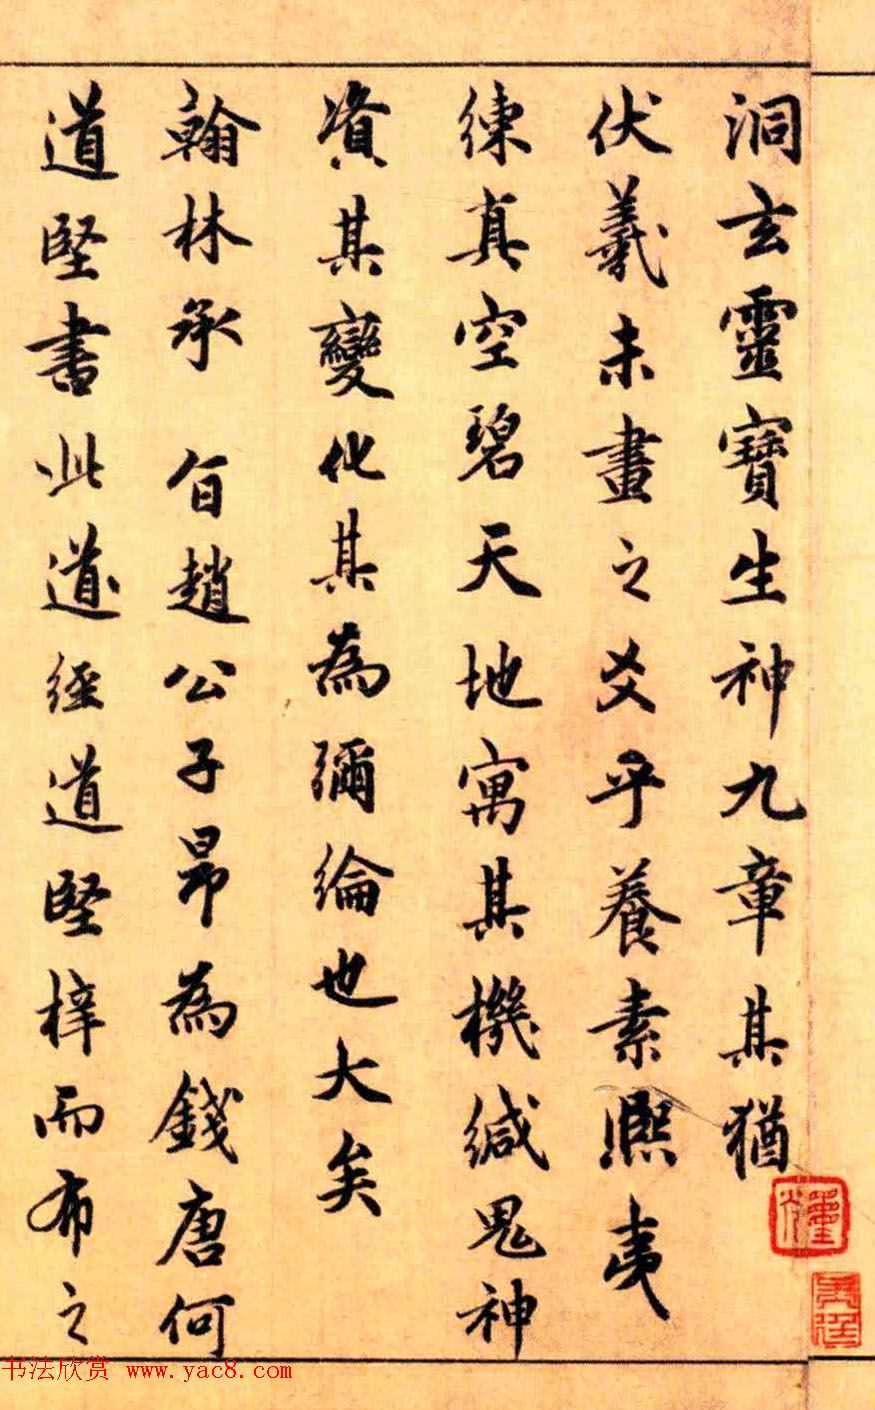 洞玄靈寶生神九章其猶
伏羲未畫之爻乎養素熙夷
練真空碧天地寓其機緘鬼神
資其變化其為彌綸也大矣
翰林承旨趙公子昂為錢唐何
道堅書此道經道堅梓而布之
书法欣赏 www.yac8.com